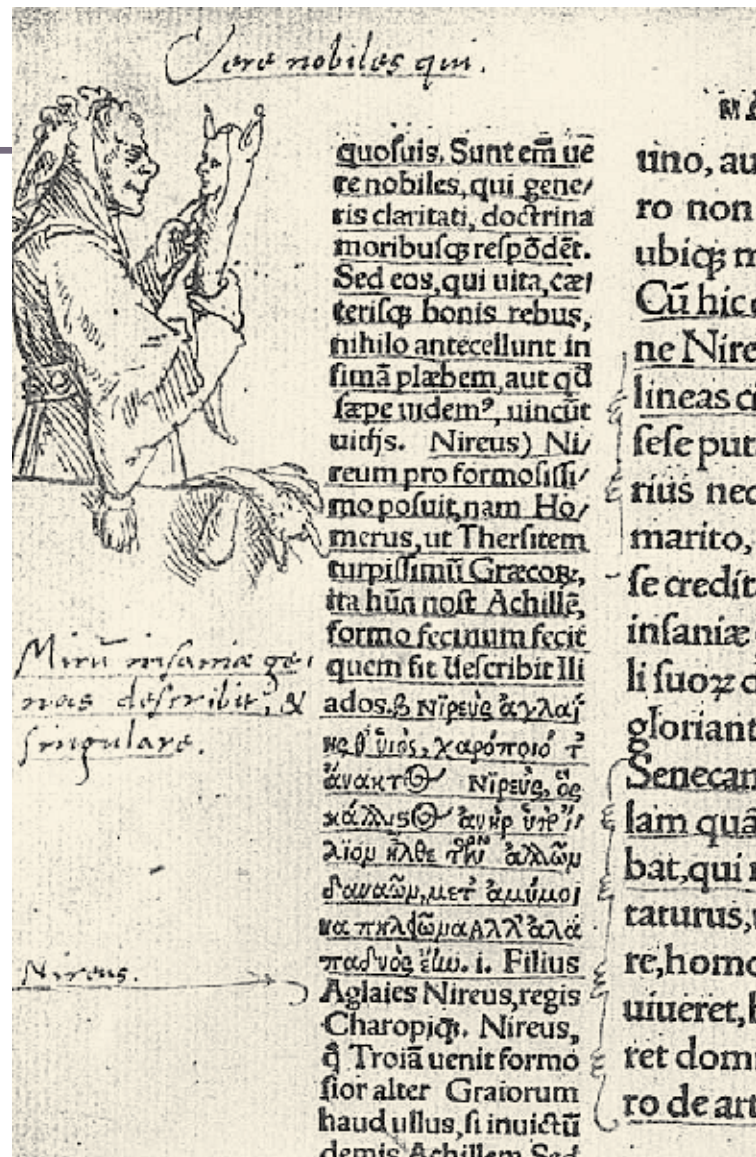 Vere nobiles qui.
Mirū insaniæ ge-
nus describit, &
singulare.
Nireus.
quoſuis. Sunt em̄ ue
re nobiles, qui gene/
ris claritati, doctrina
moribuſqꝫ reſpōdēt.
Sed eos, qui uita, cæ/
teriſqꝫ bonis rebus,
nihilo antecellunt in
fimā plæbem, aut qd̄
ſæpe uidemꝰ, uincūt
uitijs. Nireus) Ni/
reum pro formoſiſſi/
mo poſuit, nam Ho/
merus, ut Therſitem
turpiſſimū Græcoꝝ,
ita hūn poſt Achillē,
formoſiſſimum fecit
quem ſic deſcribit Ili
ados.β Νῖρεὺς ἀγλαΐ
ης θ' ὑιὸς, χαρόποιό τ'
ἄνακτος Νῖρεὺς, ὃς
κάλλιστος ἀνὴρ ὑπ' ἴ/
λιομ ἦλθε τῶν ἄλλωμ
δαναῶμ, μετ' ἀμύμο/
να πηλείωμα Αλλ' ἀλα
παδνὸς ἔιω. i. Filius
Aglaies Nireus, regis
Charopiqꝫ. Nireus,
ꝗ̄ Troiā uenit formo
ſior alter Graiorum
haud ullus, ſi inuictū
demis Achillem Sed
uno, au
ro non
ubiqꝫ m
Cū hic
ne Nire
lineas
ſeſe put
rius nec
marito,
ſe credit
inſaniæ
li ſuoꝝ
gloriant
Senecan
lam quā
bat, qui
taturus,
re, homo
uiueret,
ret dom
ro de art